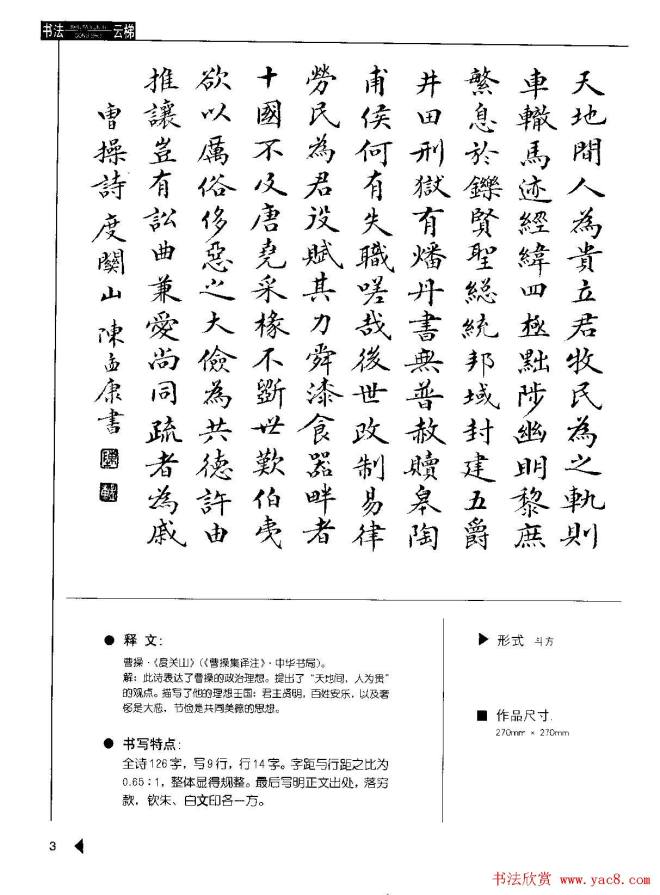 书法 云梯
天地間人為貴立君牧民為之軌則
車轍馬迹經緯四極黜陟幽明黎庶
繁息於鑠賢聖總統邦域封建五爵
井田刑獄有燔丹書無普赦贖皋陶
甫侯何有失職嗟哉後世改制易律
勞民為君役賦其力舜漆食器畔者
十國不及唐堯采椽不斲世歎伯夷
欲以厲俗侈惡之大儉為共德許由
推讓豈有訟曲兼愛尚同疏者為戚
曹操詩度關山 陳孟康書
● 释 文：
曹操·《度关山》（《曹操集译注》·中华书局）。
解：此诗表达了曹操的政治理想。提出了“天地间，人为贵”
的观点。描写了他的理想王国：君主贤明，百姓安乐，以及奢
侈是大恶，节俭是共同美德的思想。
● 书写特点：
全诗126字，写9行，行14字。字距与行距之比为
0.65：1，整体显得规整。最后写明正文出处，落穷
款，钦朱、白文印各一方。
▶ 形式 斗方
■ 作品尺寸.
270mm × 270mm
3 ◀
书法欣赏 www.yac8.com